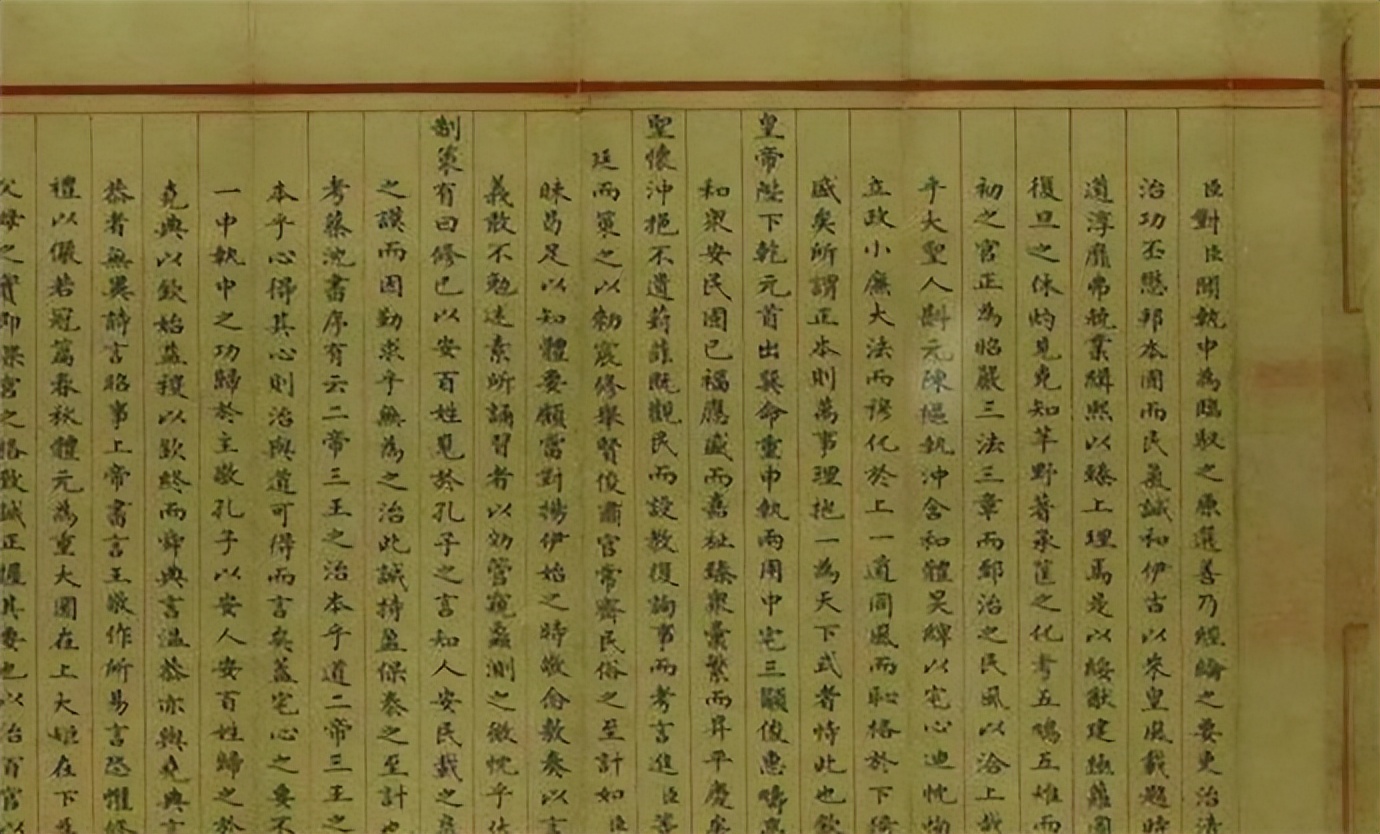 臣對臣聞執中為臨馭之原選善乃經綸之要更治
治功丕懋邦本固而民氣誠和伊古以來皇風載題時
道淳龐弗兢業緝熙以臻上理焉是以綏猷建極
復旦之休灼見克知莘野著承筐之化考五鳩五雉而
初之官正為昭嚴三法三章而郅治之民風以洽上哉
乎大聖人斟元陳樞執沖含和體昊緯以宅心迪忱恂
立政小廉大法而穆化於上一道同風而恥格於下
盛矣所謂正本則萬事理抱一為天下式者恃此也欽
皇帝陛下乾元首出巽命重申執兩用中宅三顯俊惠疇
和眾安民固已福應盛而嘉祉臻眾彙繁而昇平慶矣
聖懷沖挹不遺葑菲既觀民而設教復詢事而考言進臣等
廷而策之以勅宸修舉賢俊肅官常齊民俗之至計如臣
昧曷足以知體要顧當對揚伊始之時敬念敷奏以言
義敢不勉述素所誦習者以効管窺蠡測之微忱乎伏
制策有曰修己以安百姓見於孔子之言知人安民載之
之謨而因勤求乎無為之治此誠持盈保泰之至計也
考蔡沈書序有云二帝三王之治本乎道二帝三王之
本乎心得其心則治與道可得而言矣蓋宅心之要不
一中執中之功歸於主敬孔子以安人安百姓歸之於
堯典以欽始益稷以欽終而舜典言溫恭亦與堯典言
恭者無異詩言昭事上帝書言王敬作所易言恐懼修
禮以儼若冠篇春秋體元為重大圜在上大矩在下為
父母之實即深宮之格致誠正握其要也以治百官以